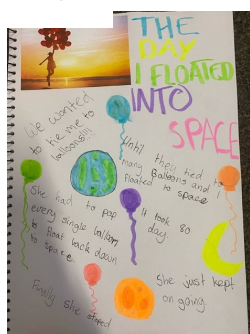 THE
DAY
I FLOATED
INTO
SPACE
We wanted
to tie me to
balloons!!!!
they tied to
many Balloons and I
floated to space
She had to pop
every single balloon
to float back down
to space
It took 80
day
She just kept
on going.
Finally she stopped